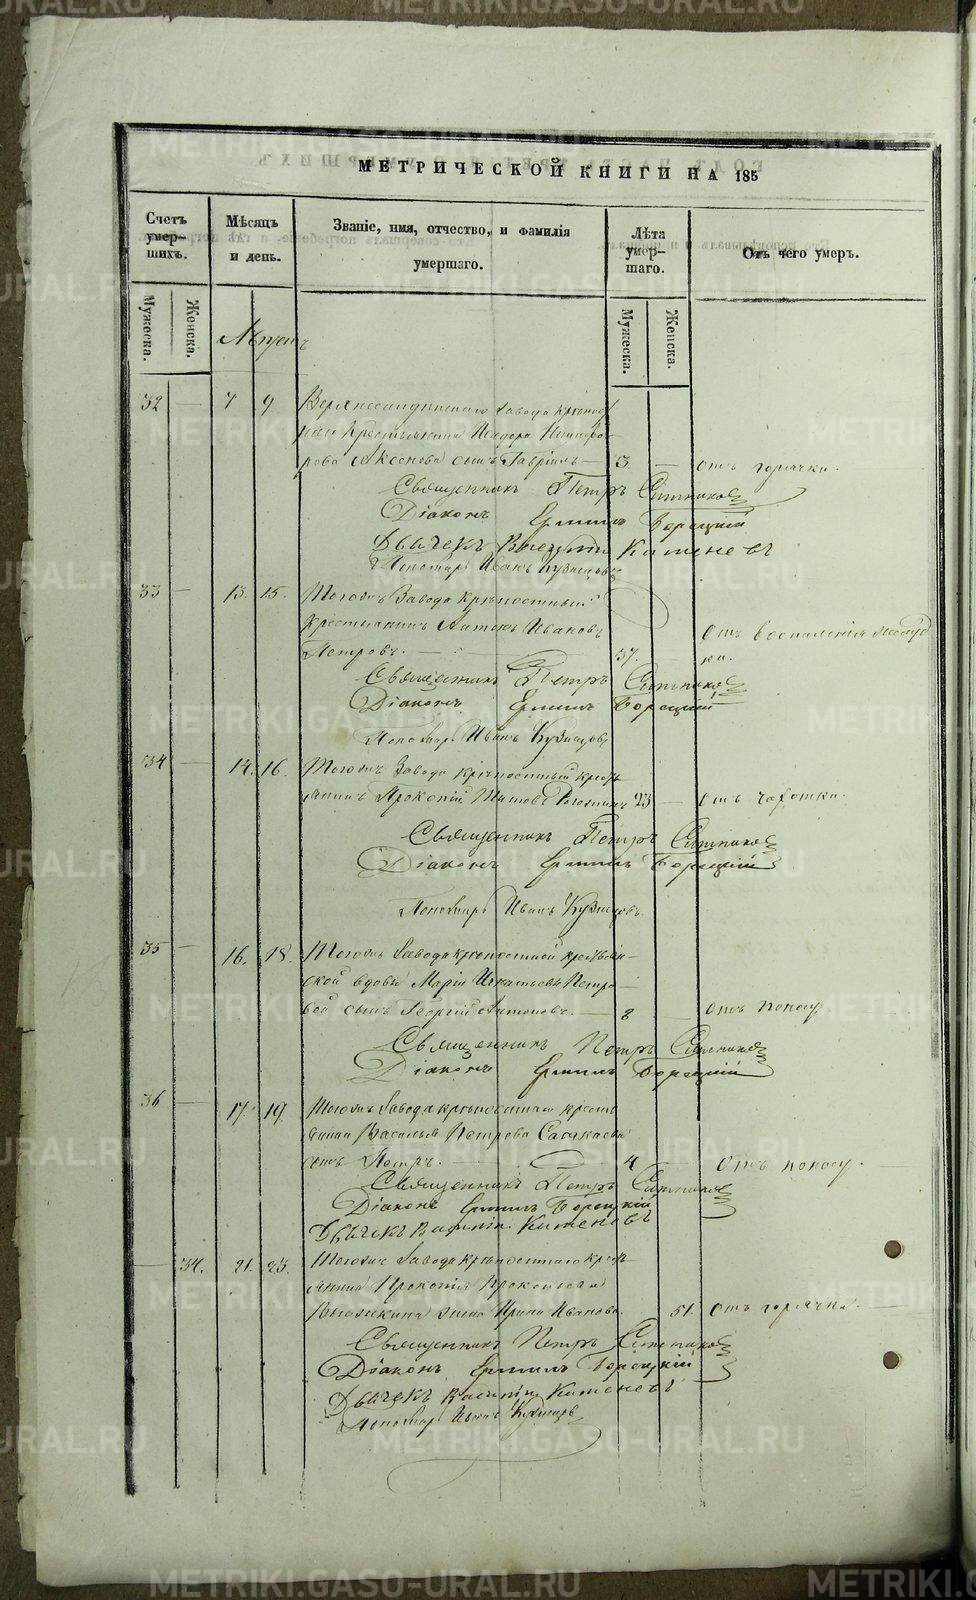 METRIKI.GASO-URAL.RU
МЕТРИЧЕСКОЙ КНИГИ НА 185
Счетъ умер-шихъ.
Мѣсяцъ и день.
Званіе, имя, отчество, и фамилія умершаго.
Лѣта умер-шаго.
Отъ чего умеръ.
Мужеска.
Женска.
Мужеска.
Женска.
Апрель
32 — 7 9 завода крѣпост
наго Крестьянина
Аксенова сынъ Гавріилъ — 3. — отъ горячки.
Священникъ Петръ Ситниковъ
Діаконъ Ермилъ Борецкій
Дьячекъ Василій Каменевъ
Пономарь Иванъ Кузнецовъ
33 — 13. 15. Тогожъ Завода крѣпостный
крестьянинъ Антонъ Ивановъ
Петровъ. — 37. — Отъ воспаленія желуд
ка.
Священникъ Петръ Ситниковъ
Діаконъ Ермилъ Борецкій
Пономарь Иванъ Кузнецовъ
34 — 14. 16. Тогожъ Завода крѣпостный крест
янинъ Прокопій Титовъ 23 — отъ чахотки.
Священникъ Петръ Ситниковъ
Діаконъ Ермилъ Борецкій
Пономарь Иванъ Кузнецовъ
35 — 16. 18. Тогожъ Завода крѣпостной крестьян-
ской вдовы Маріи Игнатьевы Петро-
вой сынъ Георгій Антоновъ. — 8 — отъ поносу
Священникъ Петръ Ситниковъ
Діаконъ Ермилъ Борецкій
36 — 17. 19. Тогожъ Завода крѣпостнаго крест
янина Василья Петрова
сынъ Петръ. — 4 — Отъ поносу.
Священникъ Петръ Ситниковъ
Діаконъ Ермилъ Борецкій
Дьячекъ Василій Каменевъ
— 34. 21. 23. Тогожъ Завода крѣпостнаго крест
янина Прокопія Прокопьева
жена Ирина Иванова. 51. отъ горячки.
Священникъ Петръ Ситниковъ
Діаконъ Ермилъ Борецкій
Дьячекъ Василій Каменевъ
Пономарь Иванъ Кузнецовъ